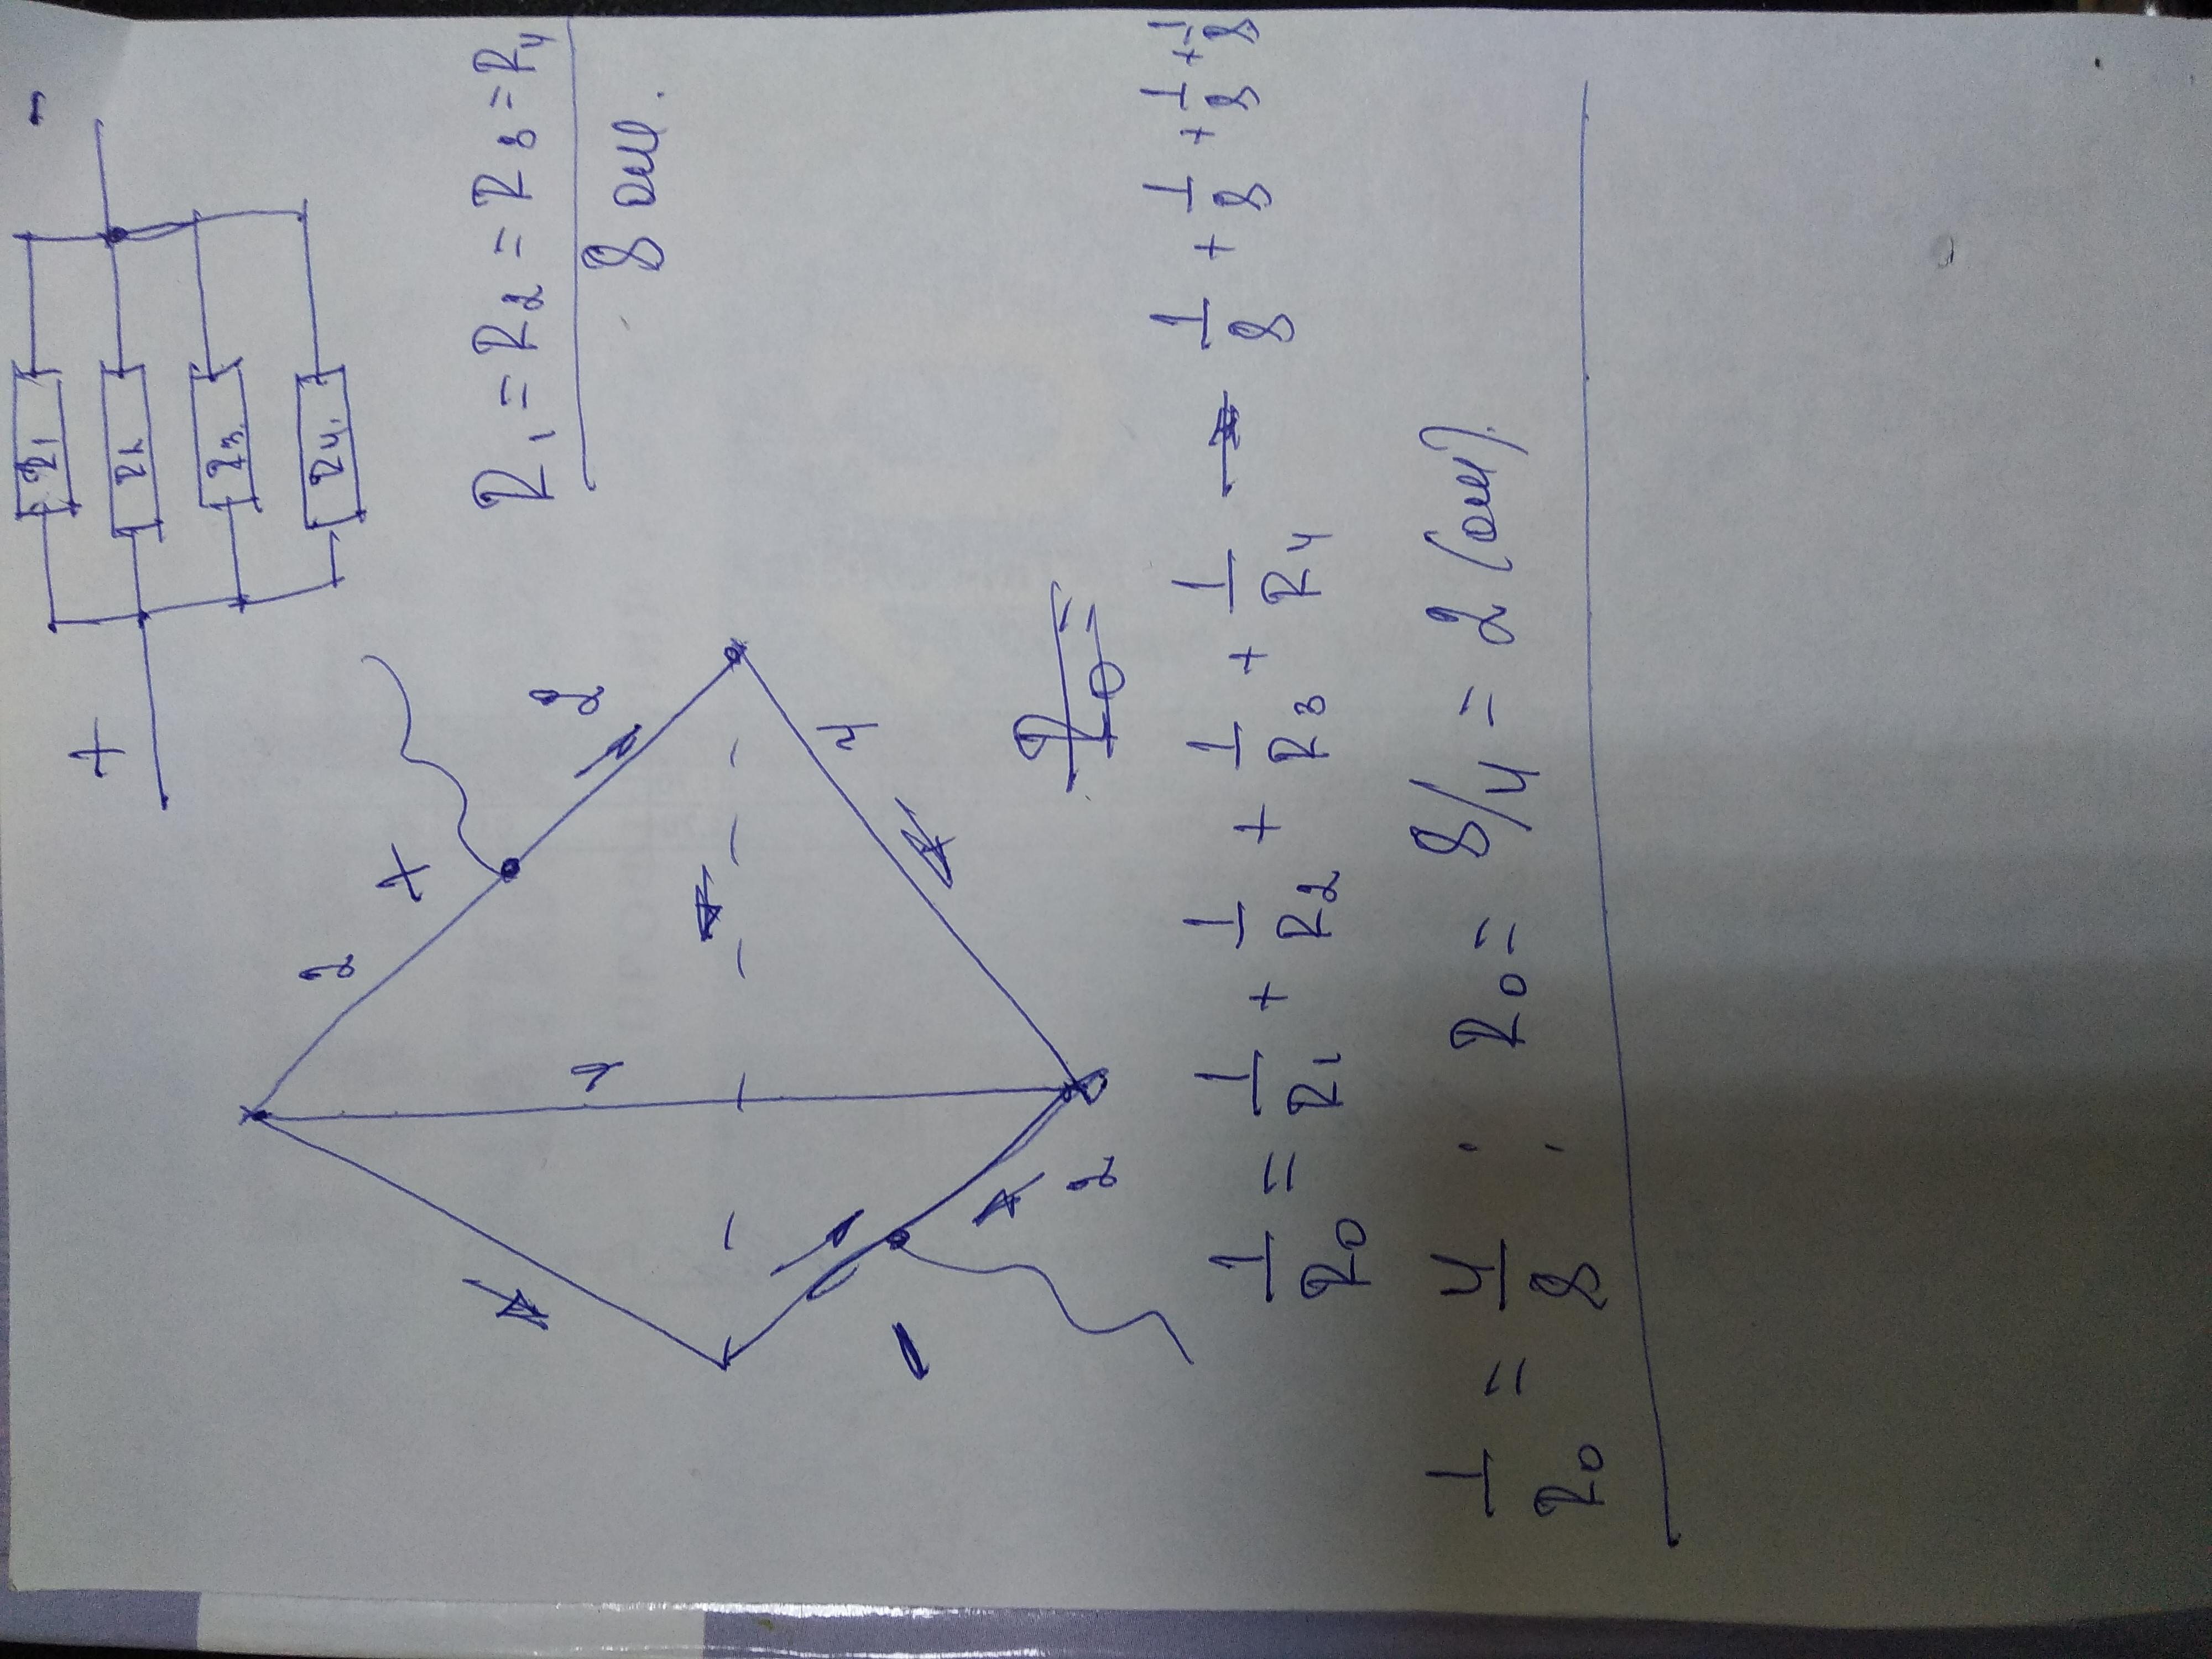 + -
R1
R2
R3
R4
R1 = R2 = R3 = R4
8 ом.
+
2
2
4
4
2
-
R0 =
1/R0 = 1/R1 + 1/R2 + 1/R3 + 1/R4 → 1/8 + 1/8 + 1/8 + 1/8
1/R0 = 4/8 ; R0 = 8/4 = 2 (ом).